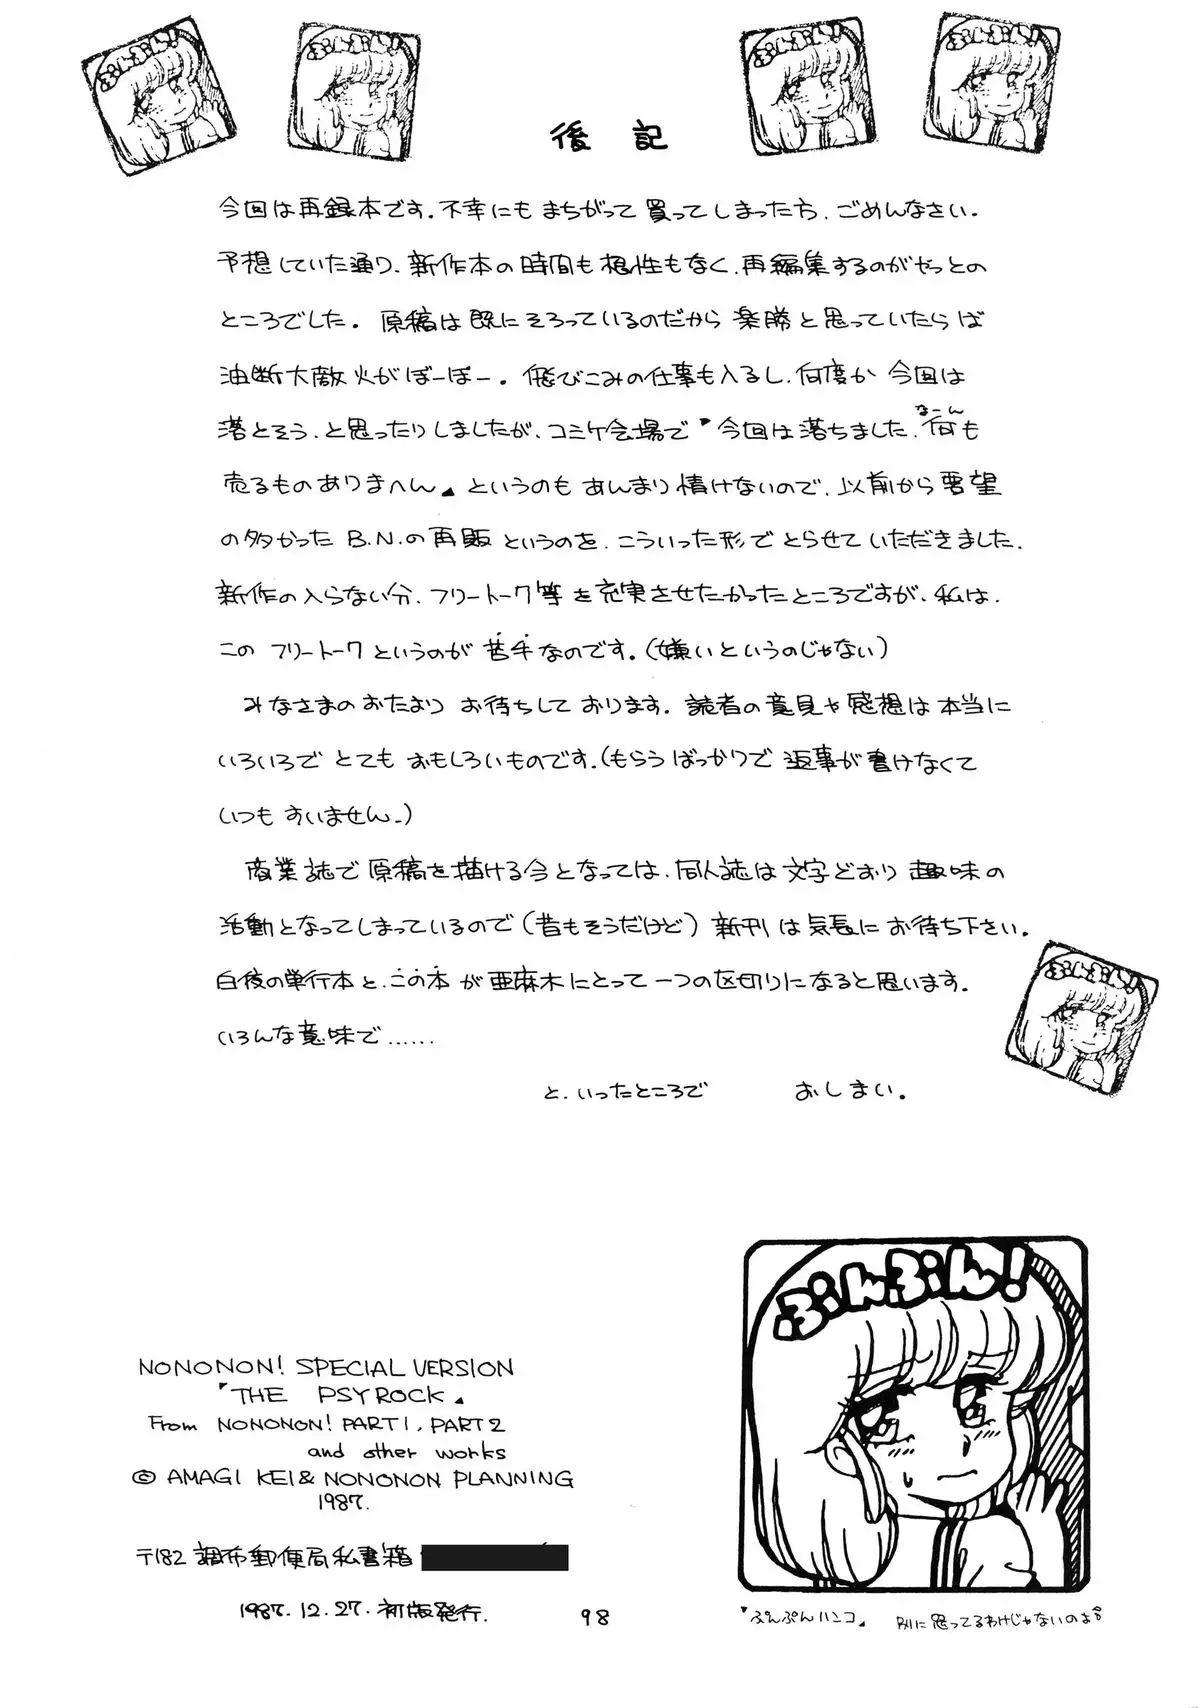 ぷんぷん!
ぷんぷん!
ぷんぷん!
ぷんぷん!
後記
今回は再録本です。不幸にもまちがって買ってしまった方、ごめんなさい。
予想していた通り、新作本の時間も根性もなく、再編集するのがやっとの
ところでした。原稿は既にそろっているのだから楽勝と思っていたらば
油断大敵火がぼーぼー。飛びこみの仕事も入るし、何度か今回は
落とそう、と思ったりしましたが、コミケ会場で『今回は落ちました、何も
なーん
売るものありまへん』というのもあんまり情けないので、以前から要望
の多かったB.N.の再販というのを、こういった形でとらせていただきました。
新作の入らない分、フリートーク等を充実させたかったところですが、私は、
このフリートークというのが苦手なのです。(嫌いというのじゃない)
みなさまのおたよりお待ちしております。読者の意見や感想は本当に
いろいろでとてもおもしろいものです。(もらうばっかりで返事が書けなくて
いつもすいません。)
商業誌で原稿を描ける今となっては、同人誌は文字どおり趣味の
活動となってしまっているので(昔もそうだけど)新刊は気長にお待ち下さい。
白夜の単行本と、この本が亜麻木にとって一つの区切りになると思います。
いろんな意味で……
と、いったところで おしまい。
ぷんぷん!
ぷんぷん!
NONONON! SPECIAL VERSION
『THE PSYROCK』
From NONONON! PART1, PART2
and other works
© AMAGI KEI & NONONON PLANNING
1987.
〒182 調布郵便局私書箱
1987.12.27.初版発行.
98
『ぷんぷんハンコ』 別に怒ってるわけじゃないのよ